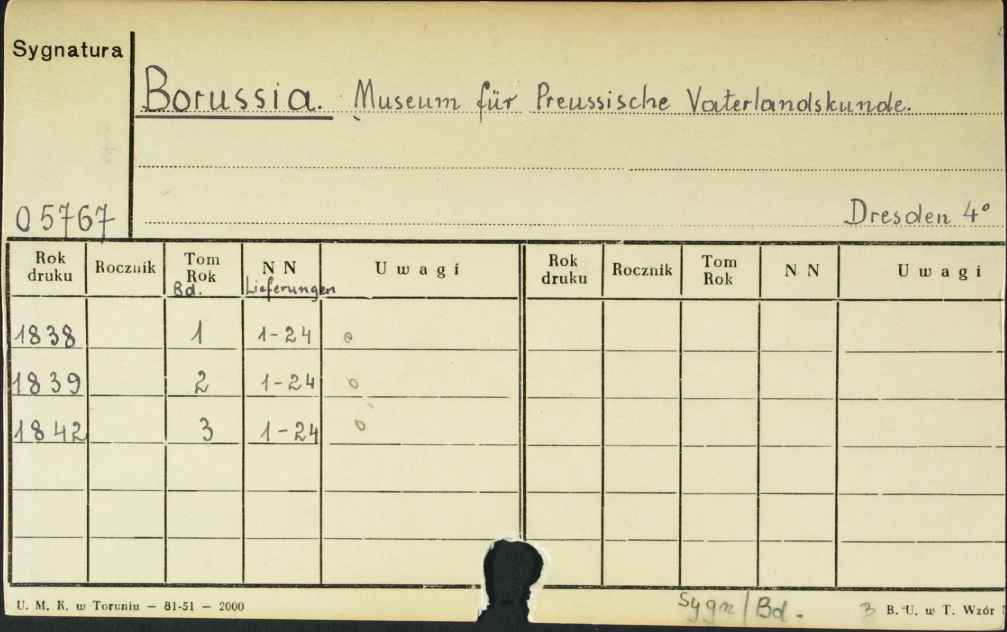 Sygnatura
Borussia. Museum für Preussische Vaterlandskunde.
05767
Dresden 4°
Rok druku Rocznik Tom Rok Bd. N N Lieferungen Uwagi Rok druku Rocznik Tom Rok N N Uwagi
1838 1 1-24 o
1839 2 1-24 o
1842 3 1-24 o
U. M. K. w Toruniu — 81-51 — 2000
Sygn/Bd.
B. U. w T. Wzór